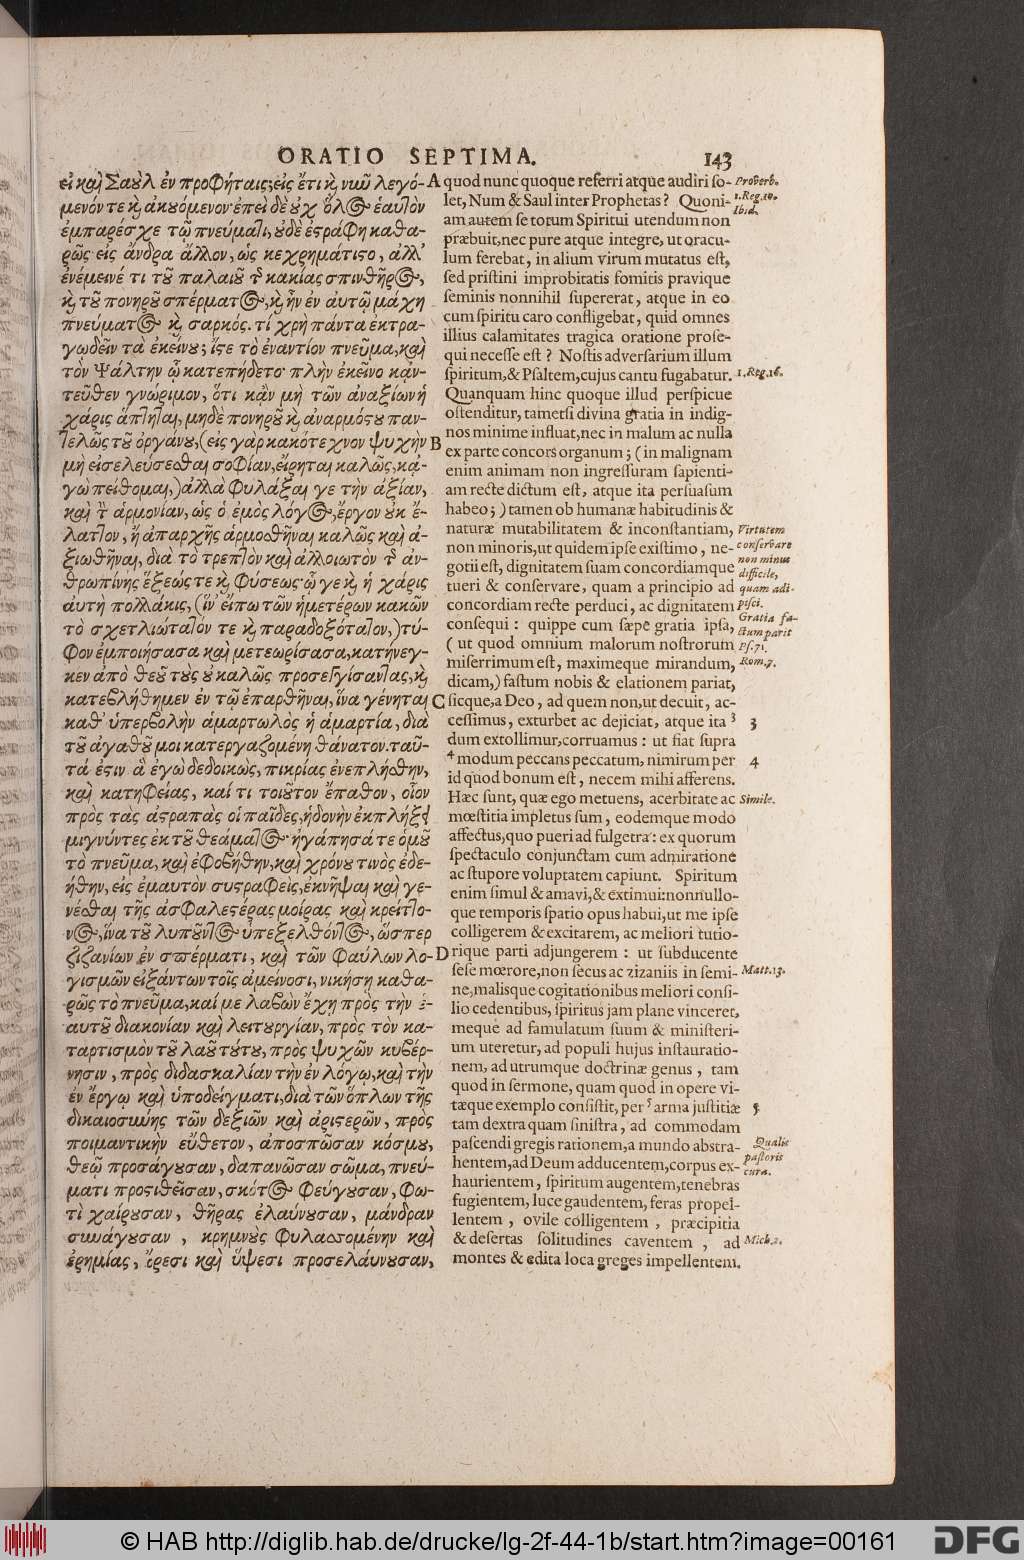 ORATIO SEPTIMA. 143
εἰ καὶ Σαοὺλ ἐν προφήταις; εἰς ἔτι κ̀ νυῦ λεγό-
μενόν τε κ̀ ἀκουόμενον· ἐπεὶ δὲ οὐχ ὅλον ἑαυτὸν
ἐμπαρέσχε τῷ πνεύματι, οὐδὲ ἐστράφη καθα-
ρῶς εἰς ἄνδρα ἄλλον, ὡς κεχρημάτιστο, ἀλλ'
ἐνέμεινέ τι τοῦ παλαιοῦ τ κακίας σπινθῆρος,
κ̀ τοῦ πονηροῦ σπέρματος, κ̀ ἦν ἐν αὐτῷ μάχη
πνεύματος κ̀ σαρκός. τί χρὴ πάντα ἐκτρα-
γῳδεῖν τὰ ἐκείνου; ἴστε τὸ ἐναντίον πνεῦμα, καὶ
τὸν Ψάλτην ᾧ κατεπῄδετο· πλὴν ἐκεῖνο κἀν-
τεῦθεν γνώριμον, ὅτι κἂν μὴ τῶν ἀναξίων ἡ
χάρις ἅπτηται, μηδὲ πονηροῦ κ̀ ἀναρμόστου παν-
τελῶς τοῦ ὀργάνου, (εἰς γὰρ κακότεχνον ψυχὴν
μὴ εἰσελεύσεσθαι σοφίαν, εἴρηται καλῶς, κἀ-
γὼ πείθομαι,) ἀλλὰ φυλάξαι γε τὴν ἀξίαν,
καὶ τ ἁρμονίαν, ὡς ὁ ἐμὸς λόγος, ἔργον οὐκ ἔ-
λαττον, ἢ ἀπαρχῆς ἁρμοσθῆναι καλῶς καὶ ἀ-
ξιωθῆναι, διὰ τὸ τρεπτὸν καὶ ἀλλοιωτὸν τ ἀν-
θρωπίνης ἕξεώς τε κ̀ φύσεως· ᾧ γε κ̀ ἡ χάρις
αὐτὴ πολλάκις, (ἵν' εἴπω τῶν ἡμετέρων κακῶν
τὸ σχετλιώτατόν τε κ̀ παραδοξότατον,) τύ-
φον ἐμποιήσασα καὶ μετεωρίσασα, κατήνεγ-
κεν ἀπὸ θεοῦ τοὺς οὐ καλῶς προσεγγίσαντας, κ̀
κατεβλήθημεν ἐν τῷ ἐπαρθῆναι, ἵνα γένηται
καθ' ὑπερβολὴν ἁμαρτωλὸς ἡ ἁμαρτία, διὰ
τοῦ ἀγαθοῦ μοι κατεργαζομένη θάνατον. ταῦ-
τά ἐστιν ἃ ἐγὼ δεδοικὼς, πικρίας ἐνεπλήσθην,
καὶ κατηφείας, καί τι τοιοῦτον ἔπαθον, οἷον
πρὸς τὰς ἀστραπὰς οἱ παῖδες, ἡδονὴν ἐκπλήξει
μιγνύντες ἐκ τοῦ θεάματος· ἠγάπησά τε ὁμοῦ
τὸ πνεῦμα, καὶ ἐφοβήθην, καὶ χρόνου τινὸς ἐδε-
ήθην, εἰς ἐμαυτὸν συστραφεὶς, ἐκνῆψαι καὶ γε-
νέσθαι τῆς ἀσφαλεστέρας μοίρας καὶ κρείττο-
νος, ἵνα τοῦ λυποῦντος ὑπεξελθόντος, ὥσπερ
ζιζανίων ἐν σπέρματι, καὶ τῶν φαύλων λο-
γισμῶν εἰξάντων τοῖς ἀμείνοσι, νικήσῃ καθα-
ρῶς τὸ πνεῦμα, καί με λαβὼν ἔχῃ πρὸς τὴν ἑ-
αυτοῦ διακονίαν καὶ λειτουργίαν, πρὸς τὸν κα-
ταρτισμὸν τοῦ λαοῦ τούτου, πρὸς ψυχῶν κυβέρ-
νησιν, πρὸς διδασκαλίαν τὴν ἐν λόγῳ, καὶ τὴν
ἐν ἔργῳ καὶ ὑποδείγματι, διὰ τῶν ὅπλων τῆς
δικαιοσύνης τῶν δεξιῶν καὶ ἀριστερῶν, πρὸς
ποιμαντικὴν εὔθετον, ἀποσπῶσαν κόσμου,
θεῷ προσάγουσαν, δαπανῶσαν σῶμα, πνεύ-
ματι προστιθεῖσαν, σκότος φεύγουσαν, φω-
τὶ χαίρουσαν, θῆρας ἐλαύνουσαν, μάνδραν
συνάγουσαν, κρημνοὺς φυλασσομένην καὶ
ἐρημίας, ὄρεσι καὶ ὕψεσι προσελαύνουσαν,
A quod nunc quoque referri atque audiri so-
let, Num & Saul inter Prophetas? Quoni-
am autem se totum Spiritui utendum non
præbuit, nec pure atque integre, ut oracu-
lum ferebat, in alium virum mutatus est,
sed pristini improbitatis fomitis pravique
seminis nonnihil supererat, atque in eo
cum spiritu caro confligebat, quid omnes
illius calamitates tragica oratione prose-
qui necesse est? Nostis adversarium illum
spiritum, & Psaltem, cujus cantu fugabatur.
Quanquam hinc quoque illud perspicue
ostenditur, tametsi divina gratia in indig-
nos minime influat, nec in malum ac nulla
B ex parte concors organum; (in malignam
enim animam non ingressuram sapienti-
am recte dictum est, atque ita persuasum
habeo;) tamen ob humanæ habitudinis &
naturæ mutabilitatem & inconstantiam,
non minoris, ut quidem ipse existimo, ne-
gotii est, dignitatem suam concordiamque
tueri & conservare, quam a principio ad
concordiam recte perduci, ac dignitatem
consequi: quippe cum sæpe gratia ipsa,
(ut quod omnium malorum nostrorum
miserrimum est, maximeque mirandum,
dicam,) fastum nobis & elationem pariat,
C sicque, a Deo, ad quem non, ut decuit, ac-
cessimus, exturbet ac dejiciat, atque ita ³
dum extollimur, corruamus: ut fiat supra
⁴ modum peccans peccatum, nimirum per
id quod bonum est, necem mihi afferens.
Hæc sunt, quæ ego metuens, acerbitate ac
mœstitia impletus sum, eodemque modo
affectus, quo pueri ad fulgetra: ex quorum
spectaculo conjunctam cum admiratione
ac stupore voluptatem capiunt. Spiritum
enim simul & amavi, & extimui: nonnullo-
que temporis spatio opus habui, ut me ipse
colligerem & excitarem, ac meliori tutio-
D rique parti adjungerem: ut subducente
sese mœrore, non secus ac zizaniis in semi-
ne, malisque cogitationibus meliori consi-
lio cedentibus, spiritus jam plane vinceret,
meque ad famulatum suum & ministeri-
um uteretur, ad populi hujus instauratio-
nem, ad utrumque doctrinæ genus, tam
quod in sermone, quam quod in opere vi-
tæque exemplo consistit, per ⁵ arma justitiæ
tam dextra quam sinistra, ad commodam
pascendi gregis rationem, a mundo abstra-
hentem, ad Deum adducentem, corpus ex-
haurientem, spiritum augentem, tenebras
fugientem, luce gaudentem, feras propel-
lentem, ovile colligentem, præcipitia
& desertas solitudines caventem, ad
montes & edita loca greges impellentem.
Proverb.
1. Reg. 10.
Ibid.
1. Reg. 16.
Virtutem
conservare
non minus
difficile,
quam adi-
pisci.
Gratia fa-
stum parit
Ps. 71.
Rom. 7.
3
4
Simile.
Matt. 13.
5
Qualis
pastoris
cura.
Mich. 2.
© HAB http://diglib.hab.de/drucke/lg-2f-44-1b/start.htm?image=00161
DFG